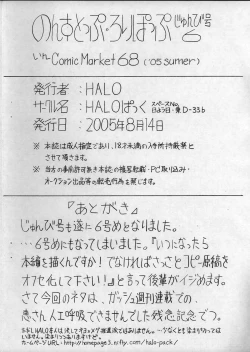 のんすとっぷ・ろりぽっぷ じゅんび号
いん Comic Market 68 ('05 sumer)
発行者 : HALO
サークル名 : HALOぱっく スペースNo. 日よう日・東D-33b
発行日 : 2005年8月14日
※ 本誌は成人指定であり、18才未満の入手所持厳禁と
させて頂きます。
※ 当方の事前許可無き本誌の複写転載・PC取り込み・
オークション出品等の転売行為を禁じます。
『あとがき』
じゅんび号も遂に6号めとなりました。
‥‥6号めにもなってしまいました。『いつになったら
本編を描くんですか! でなければさっさとコピー原稿を
オフセ化して下さい!』と言って後輩がイジめます。
さて今回のネタは、ガッシュ週刊連載での、
恵さん人工呼吸できませんでした残念記念でつ。
ホームページURL・http://homepage3.nifty.com/halo-pack/